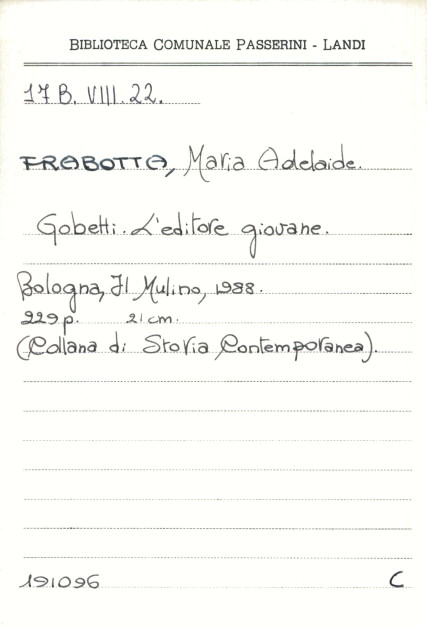 BIBLIOTECA COMUNALE PASSERINI - LANDI
17 B. VIII. 22.
FRABOTTA, Maria Adelaide.
Gobetti. L'editore giovane.
Bologna, Il Mulino, 1988.
229 p. 21 cm.
(Collana di Storia Contemporanea).
191096 C